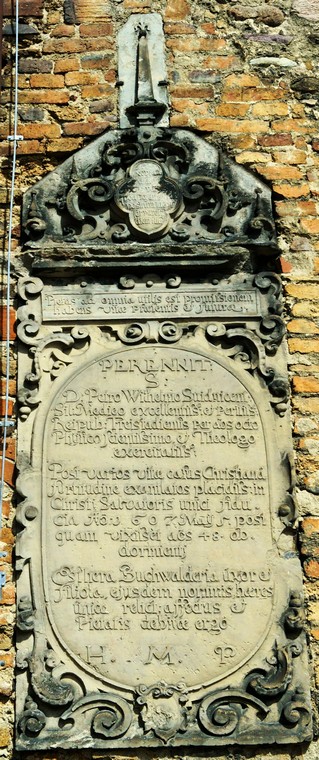 Pietas ad omnia utilis est promissionem
habens vitæ præsentis et futuræ
PERENNIT:
S
D: Petro Wilhelmio Suidnicen:
Sil: Medico excellentiss: et peritiss
Reipub: Freistadiensis per dós octo
Physico fidentissimo, & Theologo
exercitatiss:
Post varios vitæ casus Christiana
fortitudine exantlatos placidiss: in
Christi Salvatoris unici fidu
cia Aō. 1607. Maÿ 5. post
quam vixisset aēs 48. ob
dormienti
Esthera Buchwalderia Uxor et
filiola, ejusdem nominis, hæres
unice relicti, affectus et
Pietatis debitæ ergo
H. M. P